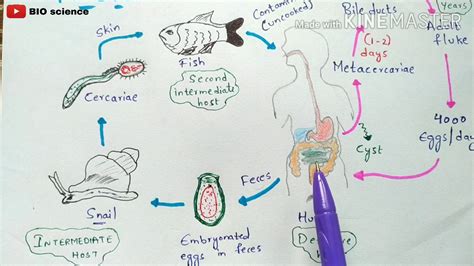 BIO science
Made with KINEMASTER
Skin
Fish
Second
intermediate
host
Contamin
(uncooked)
Bile ducts
(1-2)
days
Metacercariae
Years)
Adult
fluke
4000
Eggs/day
Cyst
Cercariae
Snail
INTERMEDIATE
HOST
Feces
Embryonated
eggs in feces
Hu
De